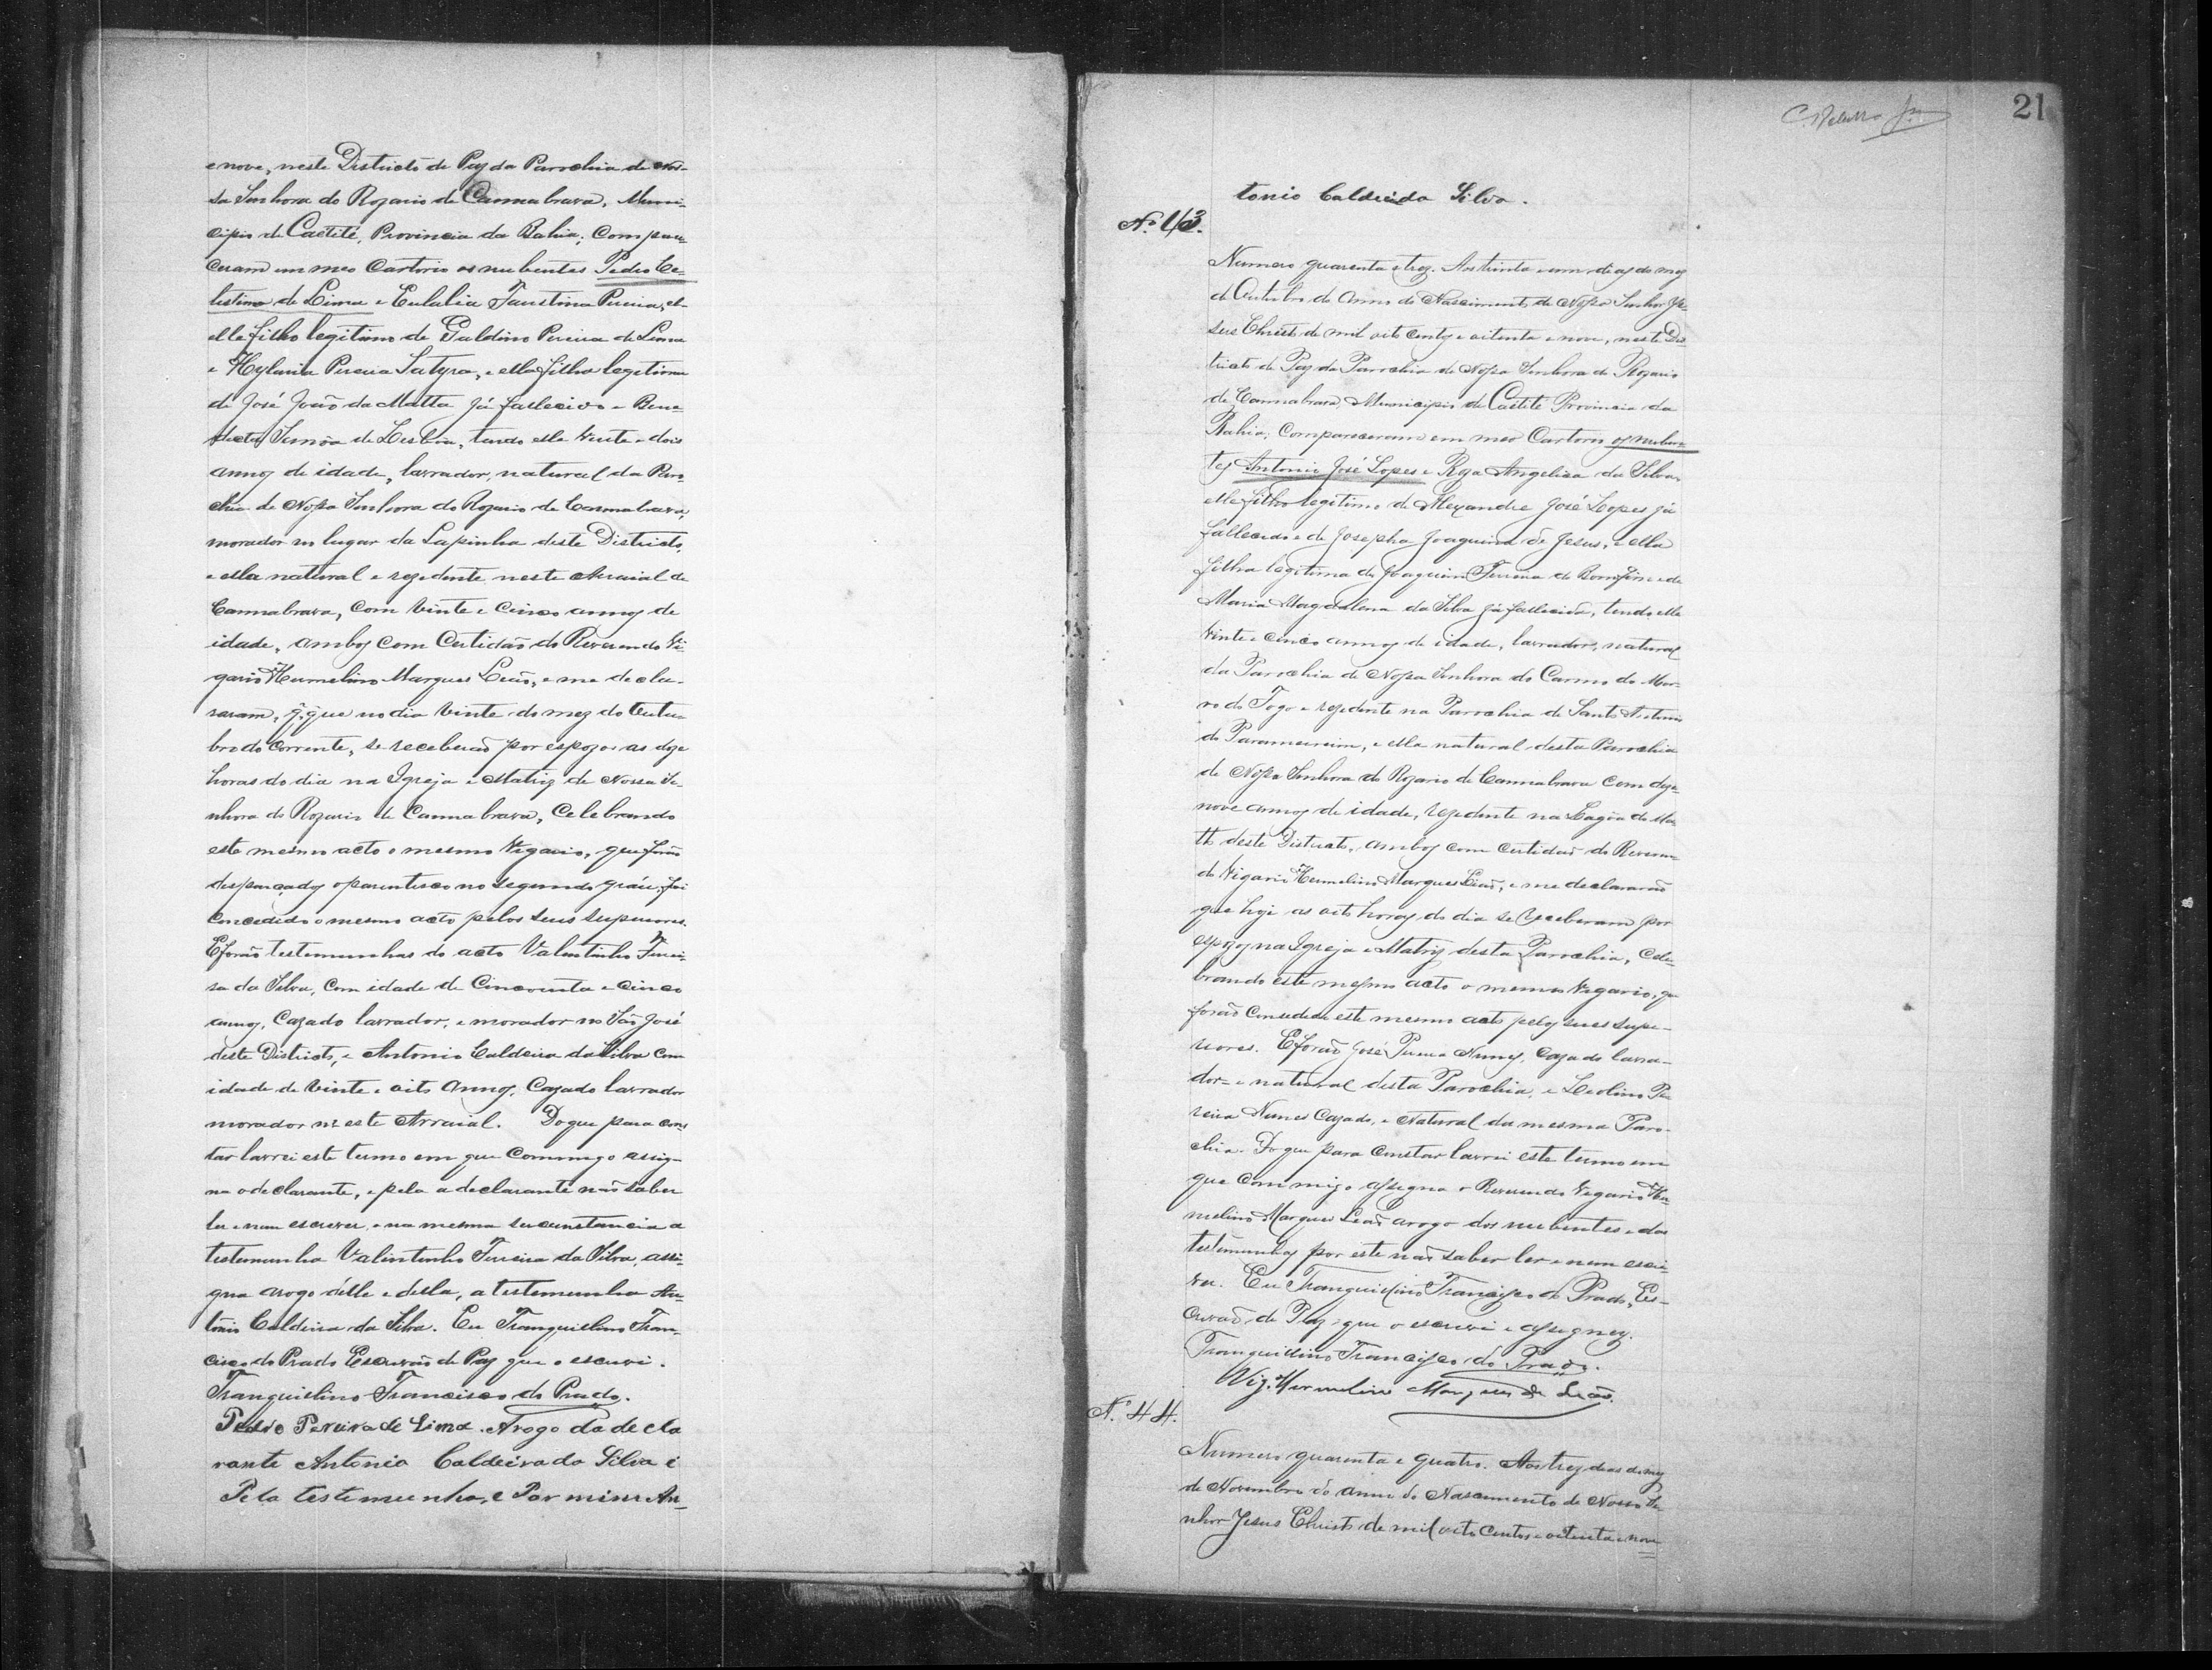 e nove, neste Districto de Paz da Parrochia de Nos-
sa Senhora do Rozario de Cannabrava, Muni-
cipio de Caetité, Provincia da Bahia; Compare-
ceram em meo Cartorio os nubentes Pedro Ce-
lestino de Lima e Eulalia Faustina Pereira, el-
elle filho legitimo de Galdino Pereira de Lima
e Hylaria Pereira Satyra, e ella filha legitima
de José João da Matta já fallecido e Bene-
dicta Simôa de Lisbôa, tendo elle vinte e dois
annos de idade, lavrador, natural da Paro-
chia de Nossa Senhora do Rozario de Cannabrava,
morador no lugar da Lapinha deste Districto,
e ella natural e rezedente neste Arraial de
Cannabrava, com vinte e cinco annos de
idade, ambos com Certidão do Reverendo Vi-
gario Hermelino Marques Leão, e me decla-
raram, q. que no dia vinte do mez do Outu-
bro do Corrente, se receberaõ por espozos as doze
horas do dia na Igreja e Matriz de Nossa Se-
nhora do Rozario de Cannabrava, Celebrando
este mesmo acto o mesmo Vigario, que forão
despençados o parentesco no segundo gráu, foi
concedido o mesmo acto pelos seus superiores.
E forão testemunhas do acto Valintinho Ferrei-
ra da Silva, com idade de Cincoenta e cinco
annos, Cazado lavrador, e morador no São José
deste Districto, e Antonio Caldeira da Silva com
idade de vinte e oito annos, Cazado lavrador
morador neste Arraial. Do que para cons-
tar lavrei este termo em que commigo assig-
na o declarante, e pela a declarante não saber
ler e nem escrever, e na mesma sircunstancia a
testemunha Valintinho Ferreira da Silva, assi-
gna arogo délle e della, a testemunha An-
tonio Caldeira da Silva. Eu Tranquilino Fran-
cisco do Prado Escrivão de Paz que o escrevi.
Tranquillino Francisco do Prado.
Pedro Pereira de Lima. Arogo da decla
rante Antonio Caldeira da Silva e
Pela testemunha, e Por mim An-
21
tonio Caldeida Silva.
N.º 43.
Numero quarenta e trez. Aos trinta e um dias do mez
de Outubro do anno do Nascimento de Nossa Senhor Je-
sus Christo de mil oito centos e oitenta e nove, neste Dis-
tricto de Paz da Parrochia de Nossa Senhora do Rozario
de Cannabrava, Municipio de Caetité Provincia da
Bahia; Compareceram em meo Cartorio os nuben-
tes Antonio José Lopes e Roza Angelica da Silva,
elle filho legitimo de Alexandre José Lopes já
fallecido e de Josepha Joaquina de Jesus, e ella
filha legitima de Joaquim Ferreira do Bomfim e de
Maria Magdalena da Silva já fallecida, tendo elle
vinte e cinco annos de idade, lavrador, natural
da Parrochia de Nossa Senhora do Carmo do Mor-
ro do Fogo e rezedente na Parrochia de Santo Antonio
do Paramerim, e ella natural desta Parochia
de Nossa Senhora do Rozario de Cannabrava com deze-
nove annos de idade, rezedente na Lagôa do Ma-
tto deste Districto, ambos com certidaõ do Reveren-
do Vigario Hermelino Marques Leaõ, e me declararaõ
que hoje as oito horas do dia se receberam por
espozos na Igreja e Matriz desta Parrochia, Cele-
brando este mesmo acto o mesmo Vigario, que
foraõ Consedida este mesmo acto pelos seus supe-
riores. E foraõ José Pereira Nunes, Cazado lavra-
dor e natural desta Parochia, e Leolino Pe-
reira Nunes Cazado, e Natural da mesma Paro-
chia. Do que para constar lavrei este termo em
que commigo assigna o Reverendo Vigario Her-
melino Marques Leaõ arogo dos nubentes e das
testemunhas por este naõ saber ler e nem escre-
ver. Eu Tranquillino Francisco do Prado, Es-
crivaõ de Paz, que o escrevi e assigney.
Tranquillino Francisco do Prado.
Vig. Hermelino Marques de Leão.
N.º 44.
Numero quarenta e quatro. Aos trez dias do mez
de Novembro do anno do Nascimento de Nosso Se-
nhor Jesus Christo de mil oito centos e oitenta e nove